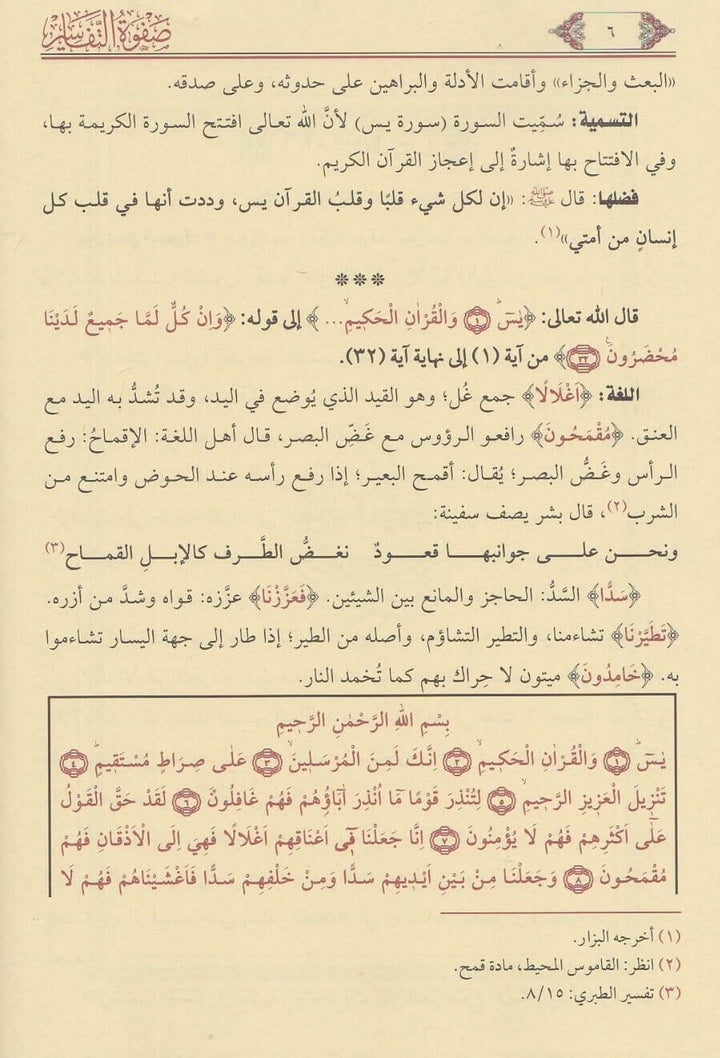 ٦
صفوة التفاسير
«البعث والجزاء» وأقامت الأدلة والبراهين على حدوثه، وعلى صدقه.
التسمية: سُمِّيت السورة (سورة يس) لأنَّ الله تعالى افتتح السورة الكريمة بها،
وفي الافتتاح بها إشارةٌ إلى إعجاز القرآن الكريم.
فضلها: قال ﷺ: «إن لكل شيء قلبًا وقلبُ القرآن يس، وددت أنها في قلب كل
إنسانٍ من أمتي»(١).
***
قال الله تعالى: ﴿يٰسٓ ۚ ١ وَالْقُرْاٰنِ الْحَك۪يمِۙ...﴾ إلى قوله: ﴿وَاِنْ كُلٌّ لَمَّا جَم۪يعٌ لَدَيْنَا
مُحْضَرُونَ۟ ٣٢﴾ من آية (١) إلى نهاية آية (٣٢).
اللغة: ﴿اَغْلَالًا﴾ جمع غُل؛ وهو القيد الذي يُوضع في اليد، وقد تُشدُّ به اليد مع
العنق. ﴿مُقْمَحُونَ﴾ رافعو الرؤوس مع غَضِّ البصر، قال أهل اللغة: الإقماحُ: رفع
الرأس وغَضُّ البصر؛ يُقال: أقمح البعير؛ إذا رفع رأسه عند الحوض وامتنع من
الشرب(٢)، قال بشر يصف سفينة:
ونحـن علـى جوانبهـا قعـودٌ نغـضُّ الطَّـرف كالإبـلِ القمـاح(٣)
﴿سَدًّا﴾ السَّدُّ: الحاجز والمانع بين الشيئين. ﴿فَعَزَّزْنَا﴾ عزَّزه: قواه وشدَّ من أزره.
﴿تَطَيَّرْنَا﴾ تشاءمنا، والتطير التشاؤم، وأصله من الطير؛ إذا طار إلى جهة اليسار تشاءموا
به. ﴿خَامِدُونَ﴾ ميتون لا حِراك بهم كما تُخمد النار.
بِسْمِ اللهِ الرَّحْمٰنِ الرَّح۪يمِ
يٰسٓ ۚ ١ وَالْقُرْاٰنِ الْحَك۪يمِۙ ٢ اِنَّكَ لَمِنَ الْمُرْسَل۪ينَۙ ٣ عَلٰى صِرَاطٍ مُسْتَق۪يمٍۜ ٤
تَنْز۪يلَ الْعَز۪يزِ الرَّح۪يمِۙ ٥ لِتُنْذِرَ قَوْمًا مَٓا اُنْذِرَ اٰبَٓاؤُ۬هُمْ فَهُمْ غَافِلُونَ ٦ لَقَدْ حَقَّ الْقَوْلُ
عَلٰٓى اَكْثَرِهِمْ فَهُمْ لَا يُؤْمِنُونَ ٧ اِنَّا جَعَلْنَا ف۪ٓي اَعْنَاقِهِمْ اَغْلَالًا فَهِيَ اِلَى الْاَذْقَانِ فَهُمْ
مُقْمَحُونَ ٨ وَجَعَلْنَا مِنْ بَيْنِ اَيْد۪يهِمْ سَدًّا وَمِنْ خَلْفِهِمْ سَدًّا فَاَغْشَيْنَاهُمْ فَهُمْ لَا
(١) أخرجه البزار.
(٢) انظر: القاموس المحيط، مادة قمح.
(٣) تفسير الطبري: ٨/١٥.